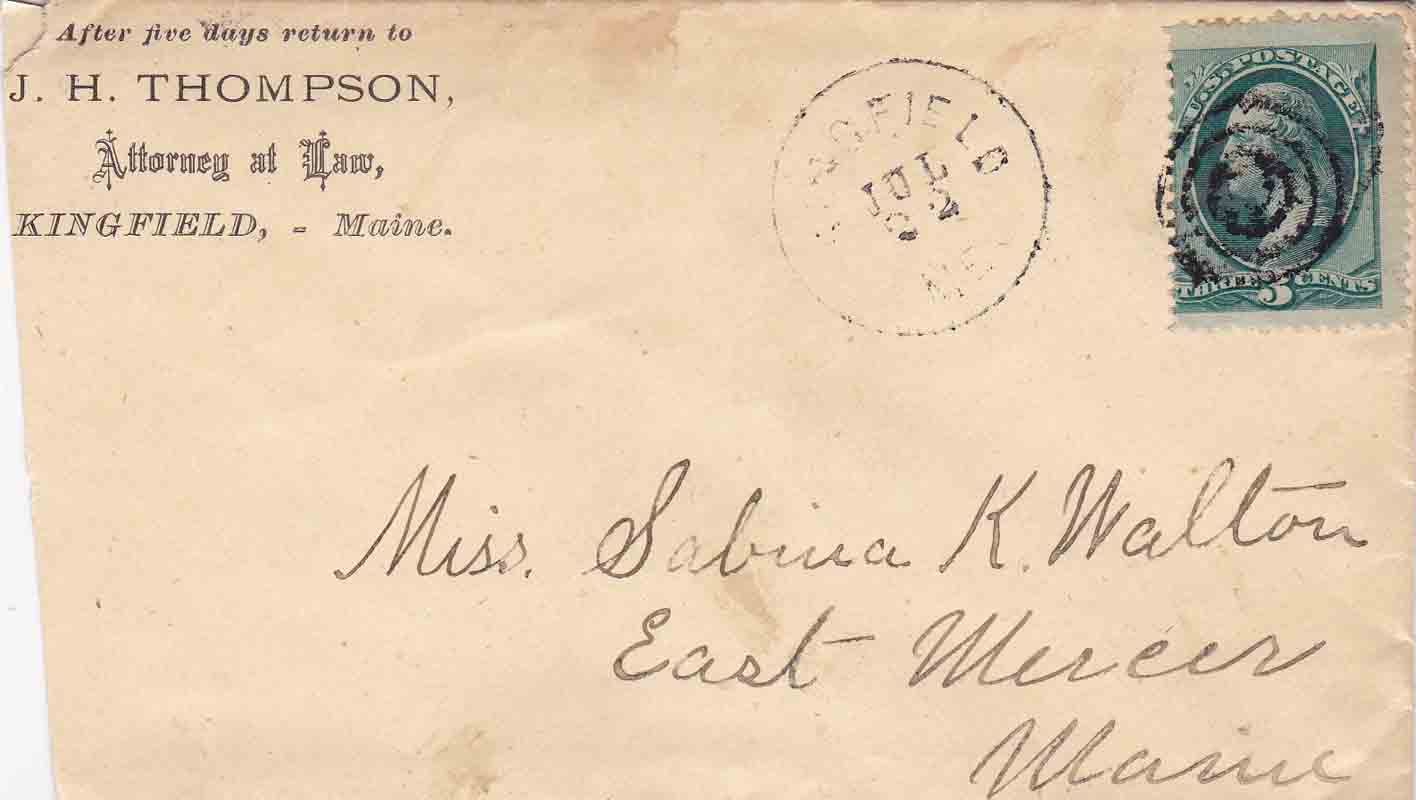 After five days return to
J. H. THOMPSON,
Attorney at Law,
KINGFIELD, - Maine.
KINGFIELD
JUL
22
ME
U.S. POSTAGE
THREE 3 CENTS
Miss. Sabina K. Walton
East Mercer
Maine